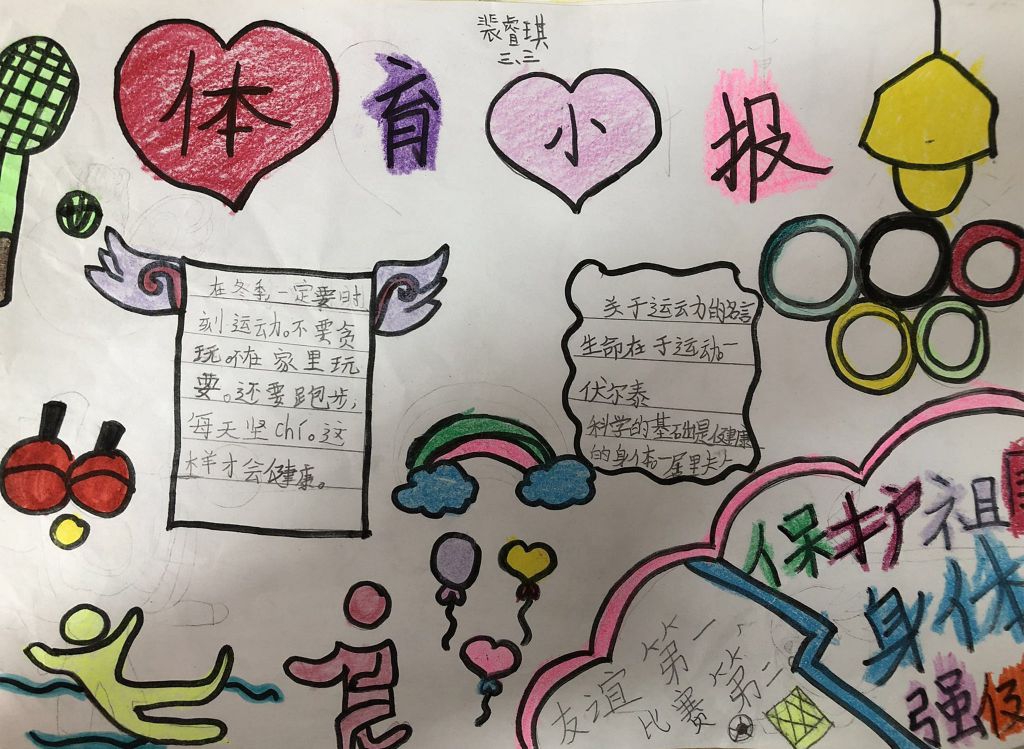 裴睿琪
三、三
体育小报
在冬季一定要时
刻运动。不要贪
玩。不在家里玩
要。还要跑步,
每天坚chí。这
样才会健康。
关于运动的名言
生命在于运动一
伏尔泰
科学的基础是健康
的身体。一居里夫人
保护祖国
身体
强健
友谊第一,
比赛第二